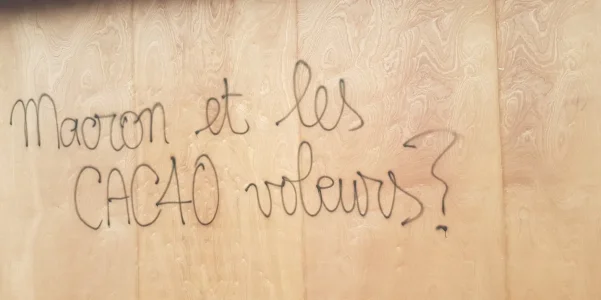 Macron et les
CAC40 voleurs?